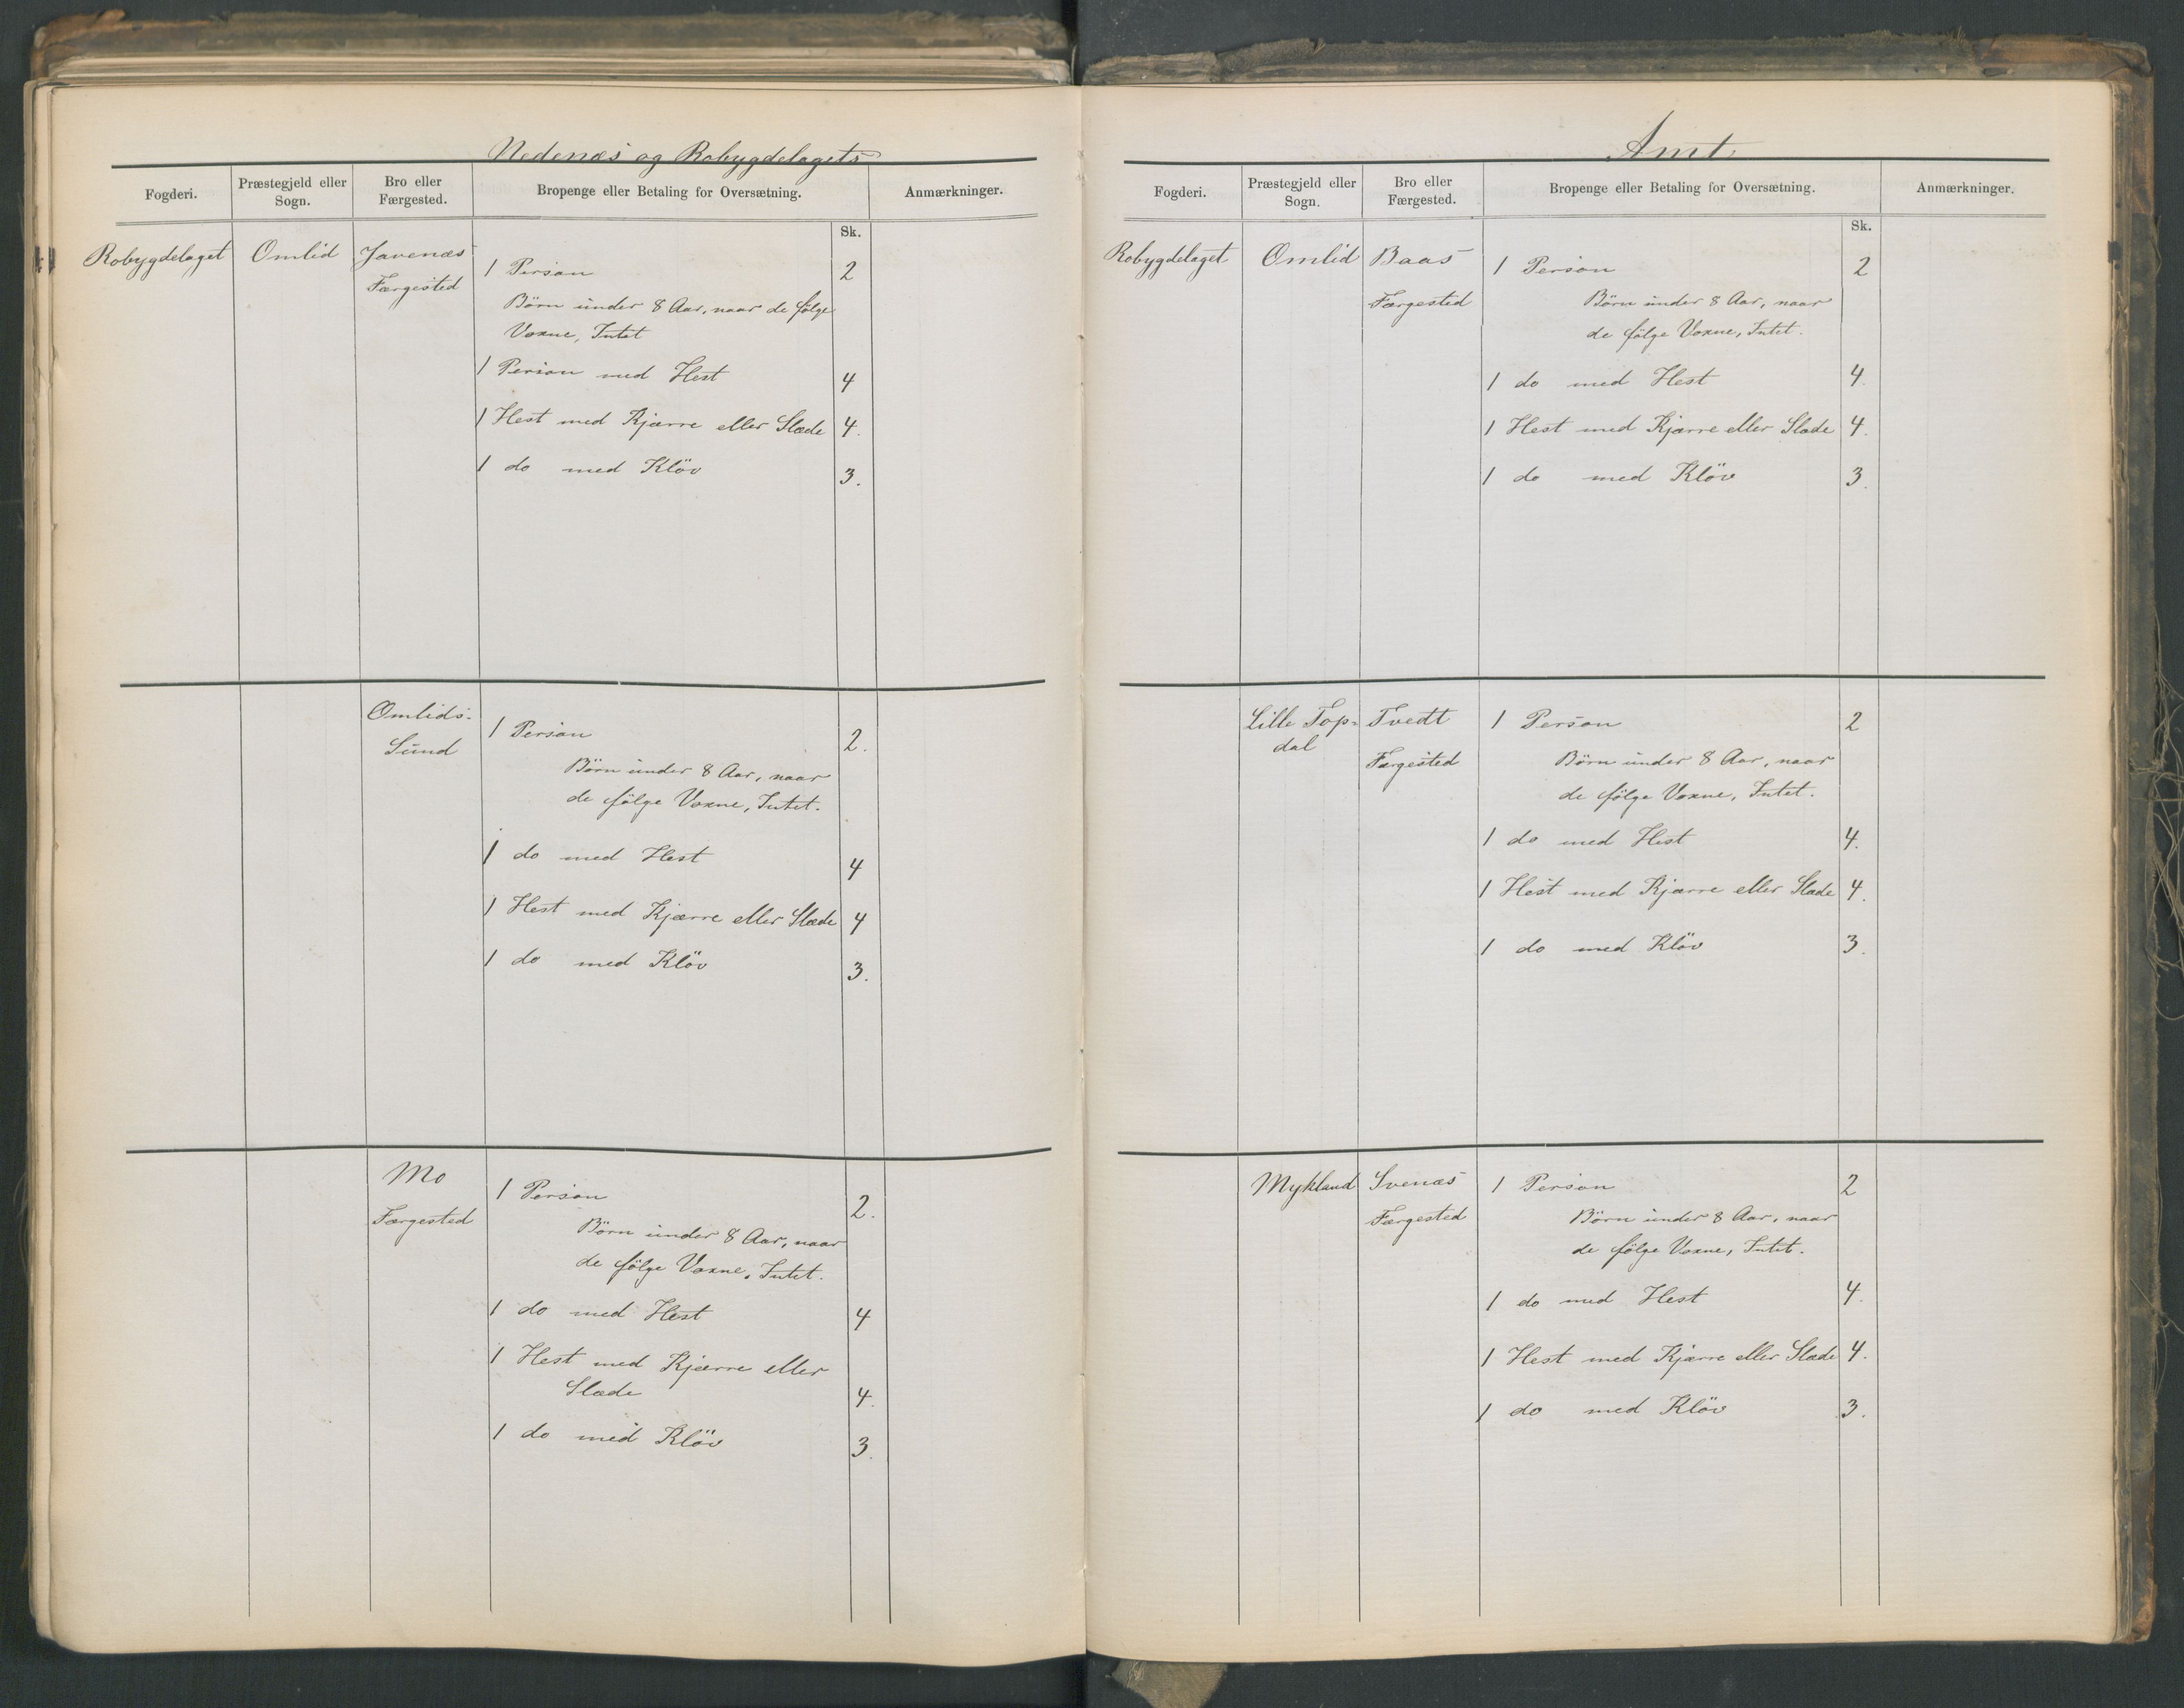 Nedenæs og Robygdelagets
Fogderi. Præstegjeld eller Sogn. Bro eller Færgested. Bropenge eller Betaling for Oversætning. Anmærkninger.
Sk.
Robygdelaget Omlid Javenæs
Færgested
1 Person 2
Börn under 8 Aar, naar de følge
Voxne, Intet
1 Person med Hest 4
1 Hest med Kjærre eller Slæde 4.
1 do med Klöv 3.
Omlids-
Sund
1 Person 2.
Börn under 8 Aar, naar
de fölge Voxne, Intet.
1 do med Hest 4
1 Hest med Kjærre eller Slæde 4
1 do med Klöv 3.
Mo
Færgested
1 Person 2.
Börn under 8 Aar, naar
de fölge Voxne, Intet.
1 do med Hest 4
1 Hest med Kjærre eller
Slæde 4.
1 do med Klöv 3.
Amt
Fogderi. Præstegjeld eller Sogn. Bro eller Færgested. Bropenge eller Betaling for Oversætning. Anmærkninger.
Sk.
Robygdelaget Omlid Baas
Færgested
1 Person 2
Börn under 8 Aar, naar
de fölge Voxne, Intet.
1 do med Hest 4.
1 Hest med Kjærre eller Slæde 4.
1 do med Klöv 3.
Lille Top=
dal
Tvedt
Færgested
1 Person 2
Börn under 8 Aar, naar
de fölge Voxne, Intet.
1 do med Hest 4.
1 Hest med Kjærre eller Slæde 4.
1 do med Klöv 3.
Mykland Svenæs
Færgested
1 Person 2
Börn under 8 Aar, naar
de fölge Voxne, Intet.
1 do med Hest 4.
1 Hest med Kjærre eller Slæde 4.
1 do med Klöv 3.